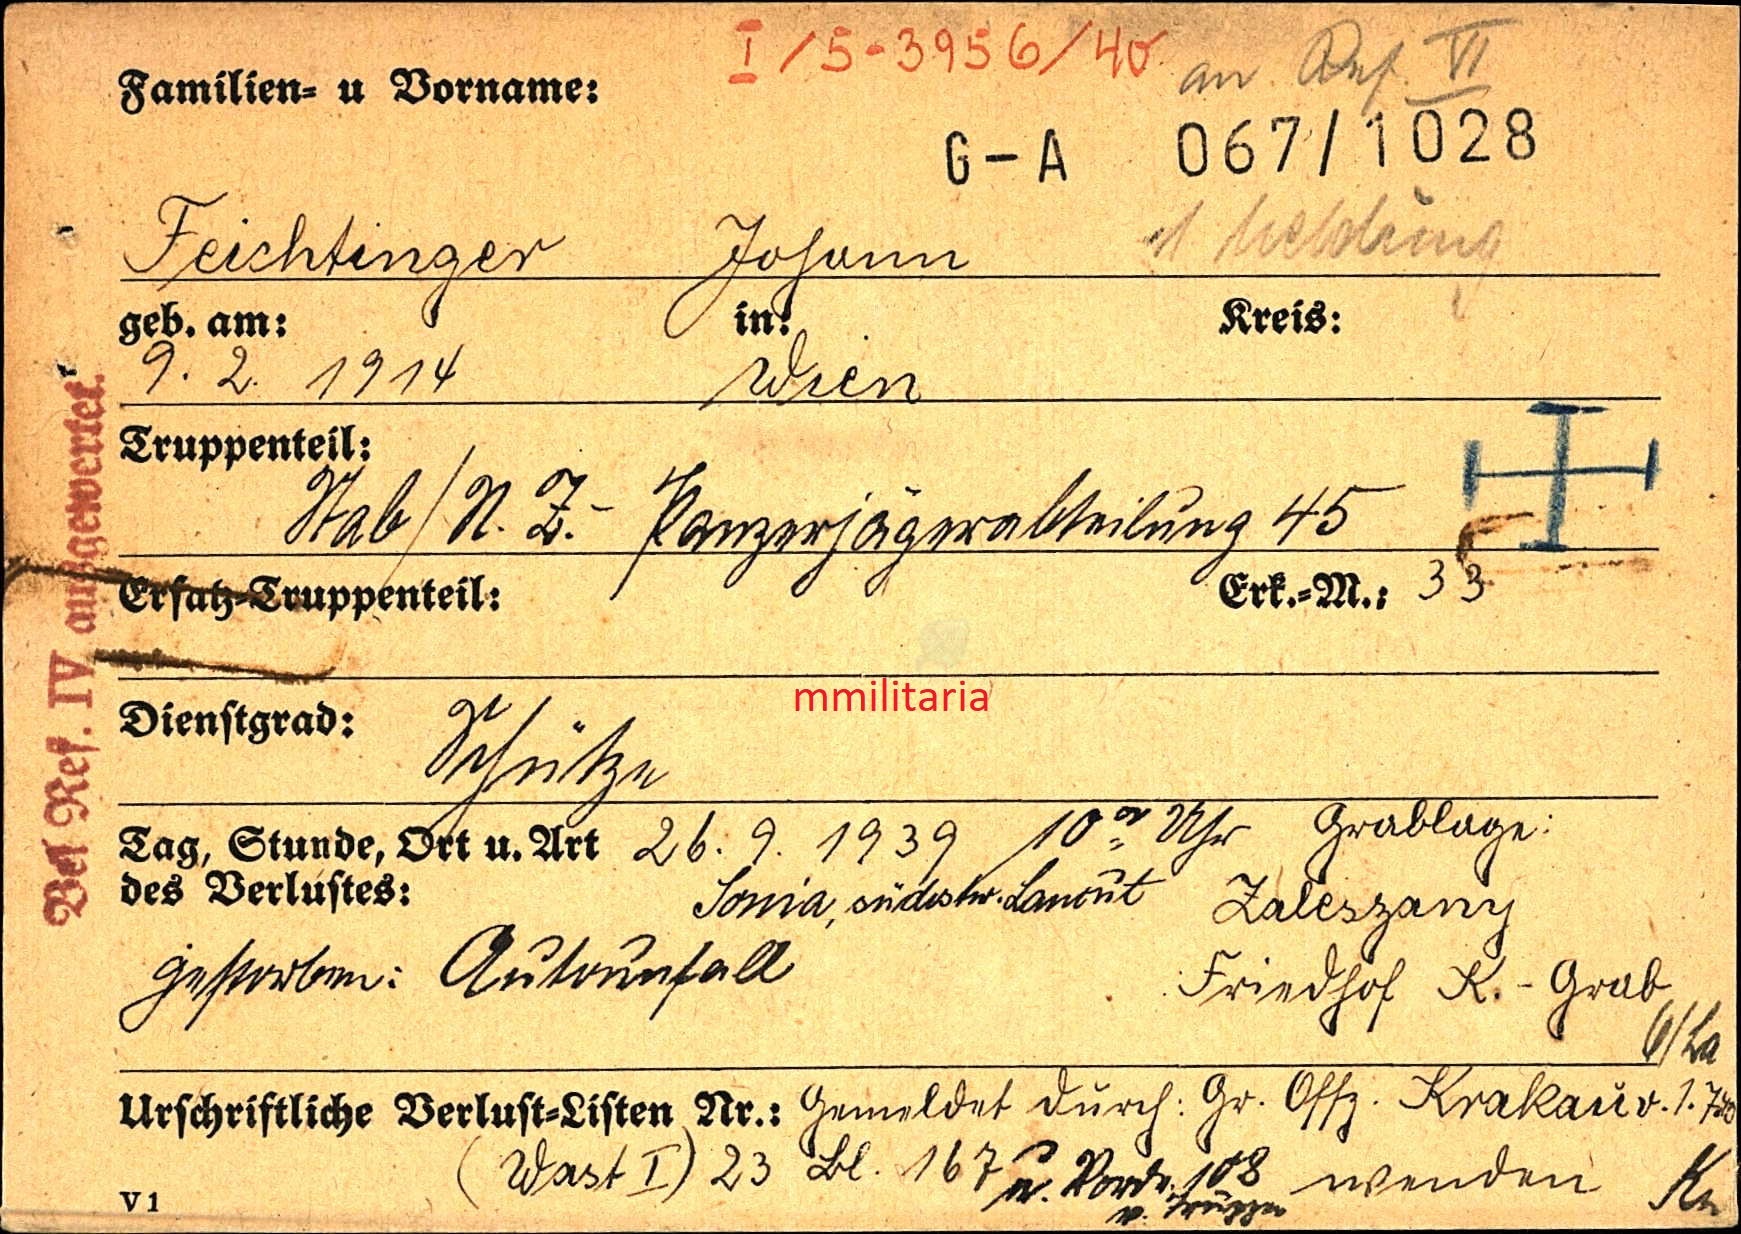 I/5-3956/40 an Ref. VI
Familien- u Vorname:
G-A 067/1028
Feichtinger Johann 1 Meldung
geb. am: in: Kreis:
9. 2. 1914 Wien
Truppenteil:
Stab/N. Z.- Panzerjägerabteilung 45
Ersatz-Truppenteil: Erk.-M.: 33
mmilitaria
Dienstgrad:
Schütze
Tag, Stunde, Ort u. Art 26. 9. 1939 10 Uhr Grablage:
des Verlustes: Sonia, südostw. Lancut Zaleszany
gestorben: Autounfall Friedhof K.-Grab
6/La
Urschriftliche Verlust-Listen Nr.: Gemeldet durch: Gr. Offz. Krakau v. 1.
(Wast I) 23 Bl. 167 u. Vordr. 108 wenden Kn
v. Truppe
V1
Bei Ref. IV ausgewertet.